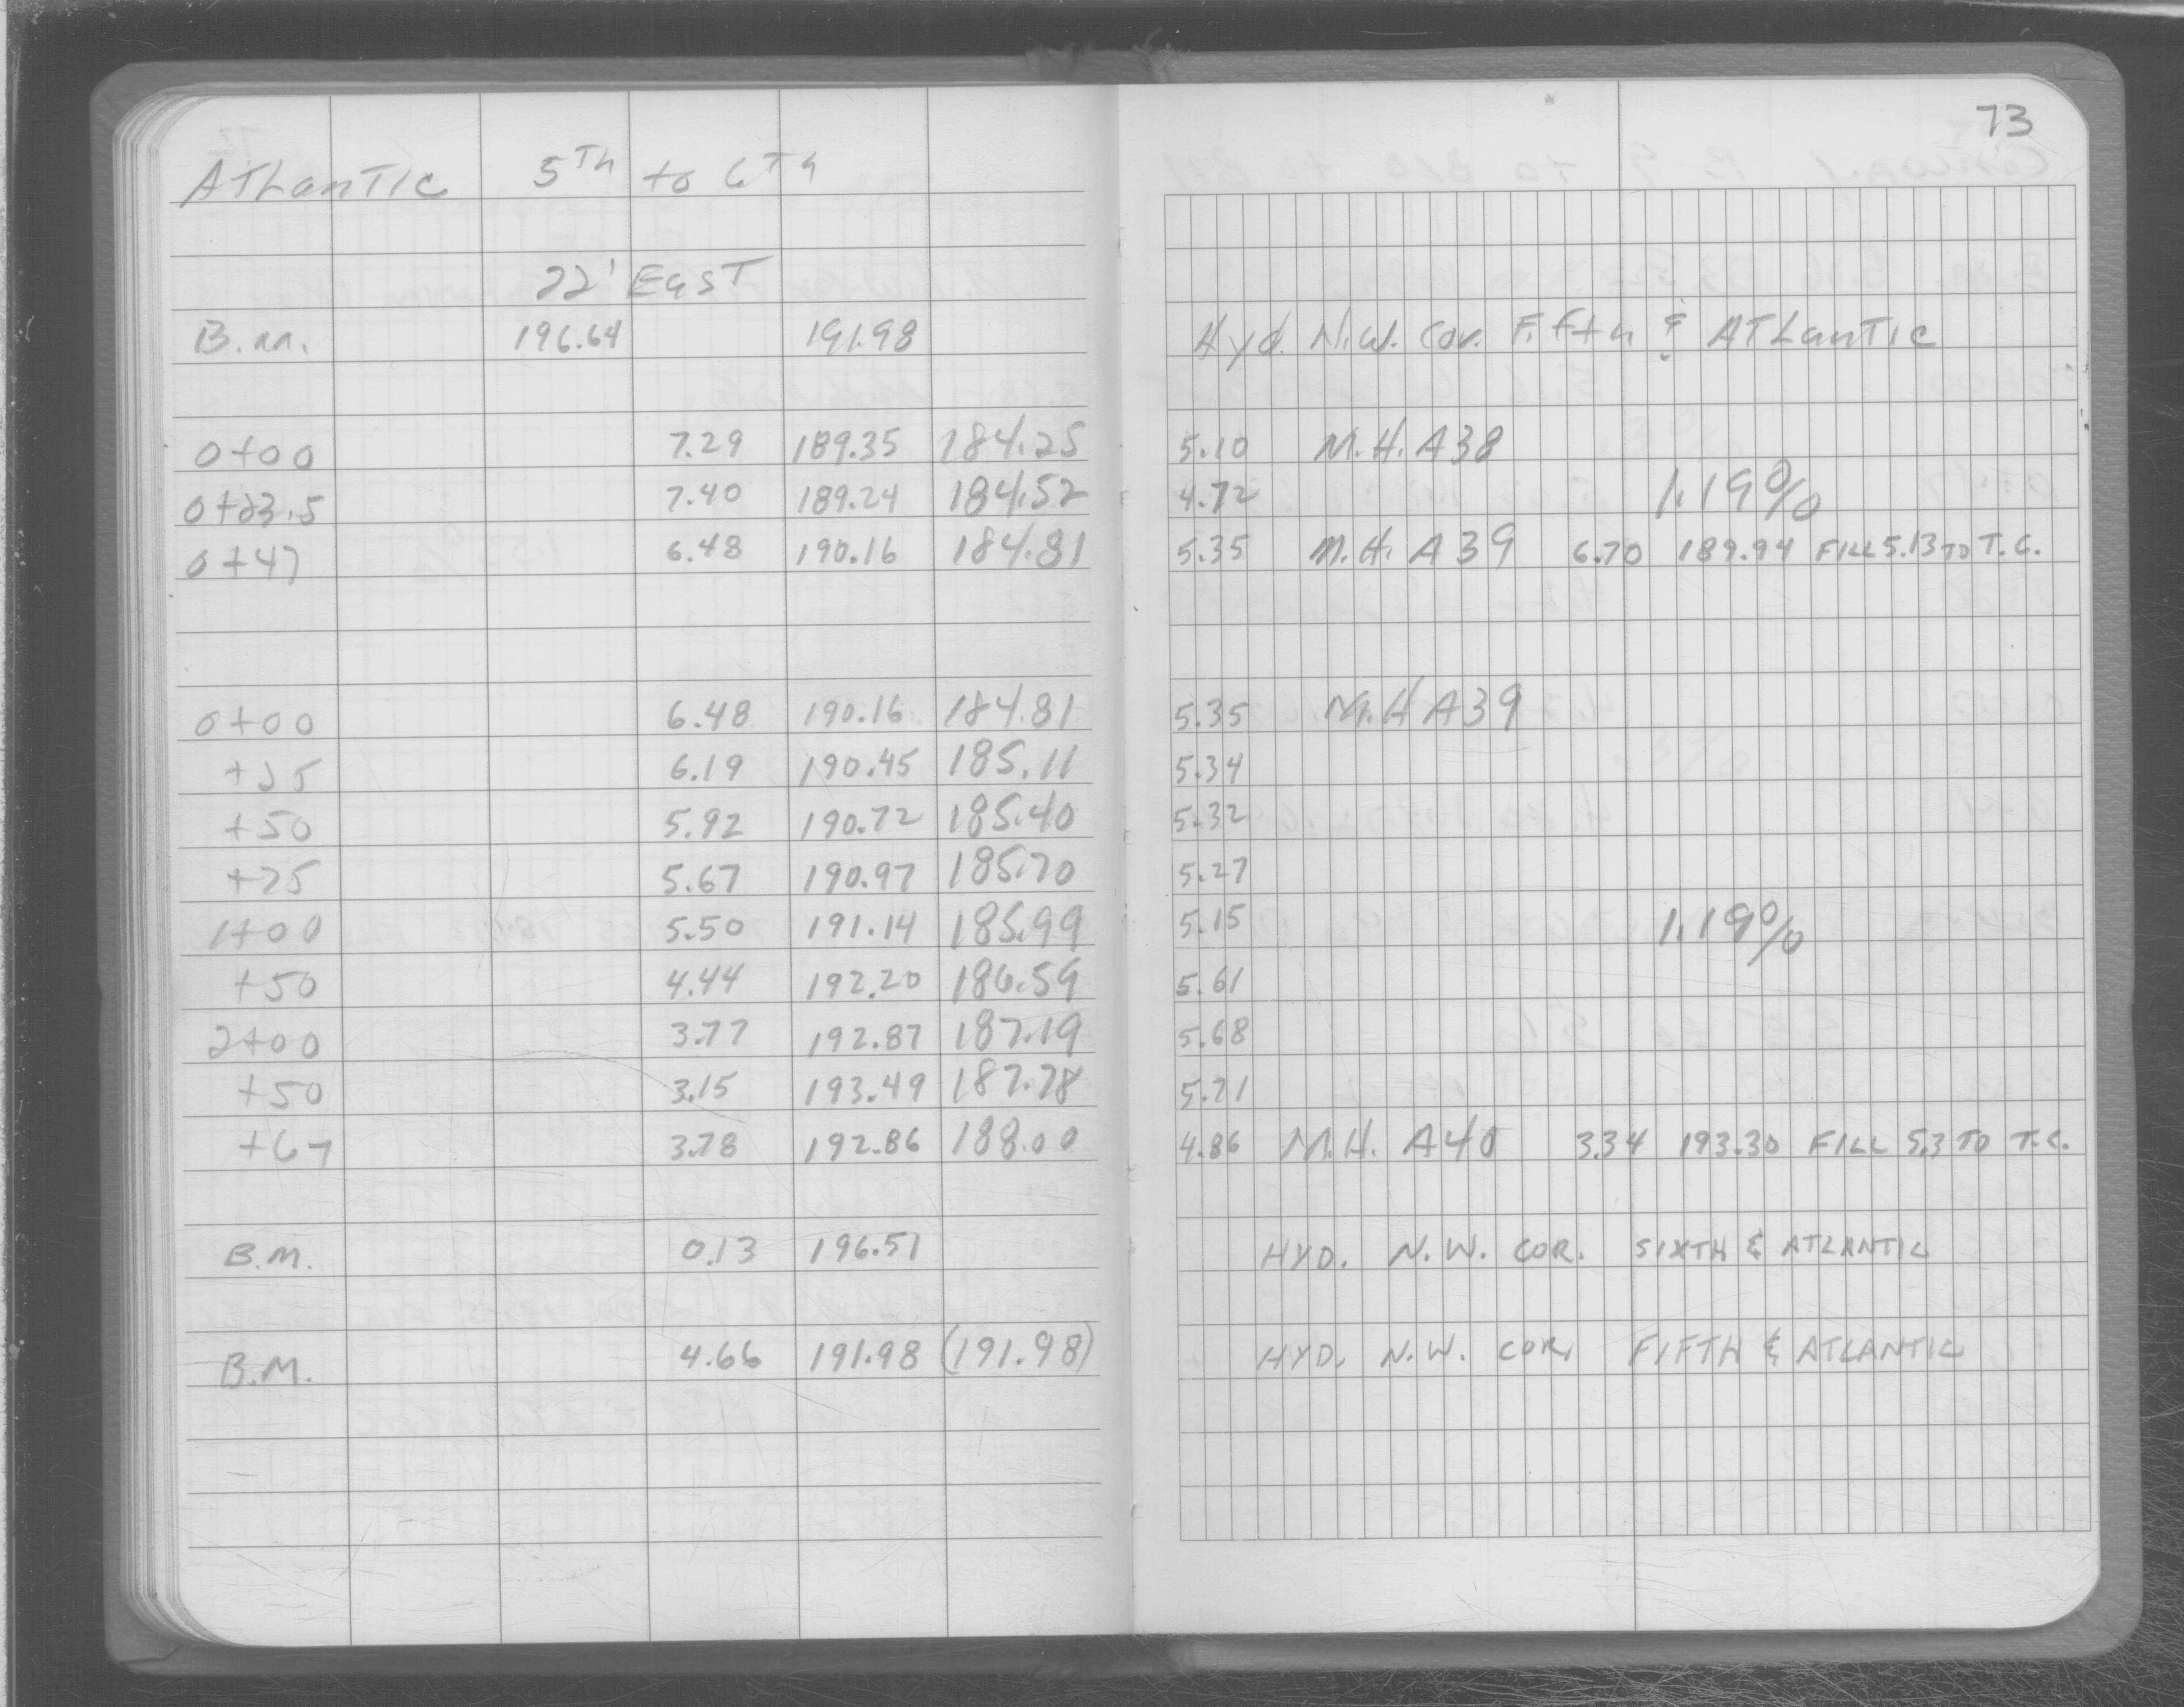 73
ATLanTIC 5Th to 6Th
22' EasT
B.M. 196.64 191.98 Hyd. N.W. Cor. Fifth & ATLanTIC
0+00 7.29 189.35 184.25 5.10 M.H. A38
0+23.5 7.40 189.24 184.52 4.72 1.19%
0+47 6.48 190.16 184.81 5.35 M.H. A39 6.70 189.94 FILL 5.13 TO T.C.
0+00 6.48 190.16 184.81 5.35 M.H A39
+25 6.19 190.45 185.11 5.34
+50 5.92 190.72 185.40 5.32
+75 5.67 190.97 185.70 5.27
1+00 5.50 191.14 185.99 5.15 1.19%
+50 4.44 192.20 186.59 5.61
2+00 3.77 192.87 187.19 5.68
+50 3.15 193.49 187.78 5.71
+67 3.78 192.86 188.00 4.86 M.H. A40 3.34 193.30 FILL 5.3 TO T.C.
B.M. 0.13 196.51 HYD. N.W. COR. SIXTH & ATLANTIC
B.M. 4.66 191.98 (191.98) HYD. N.W. COR. FIFTH & ATLANTIC